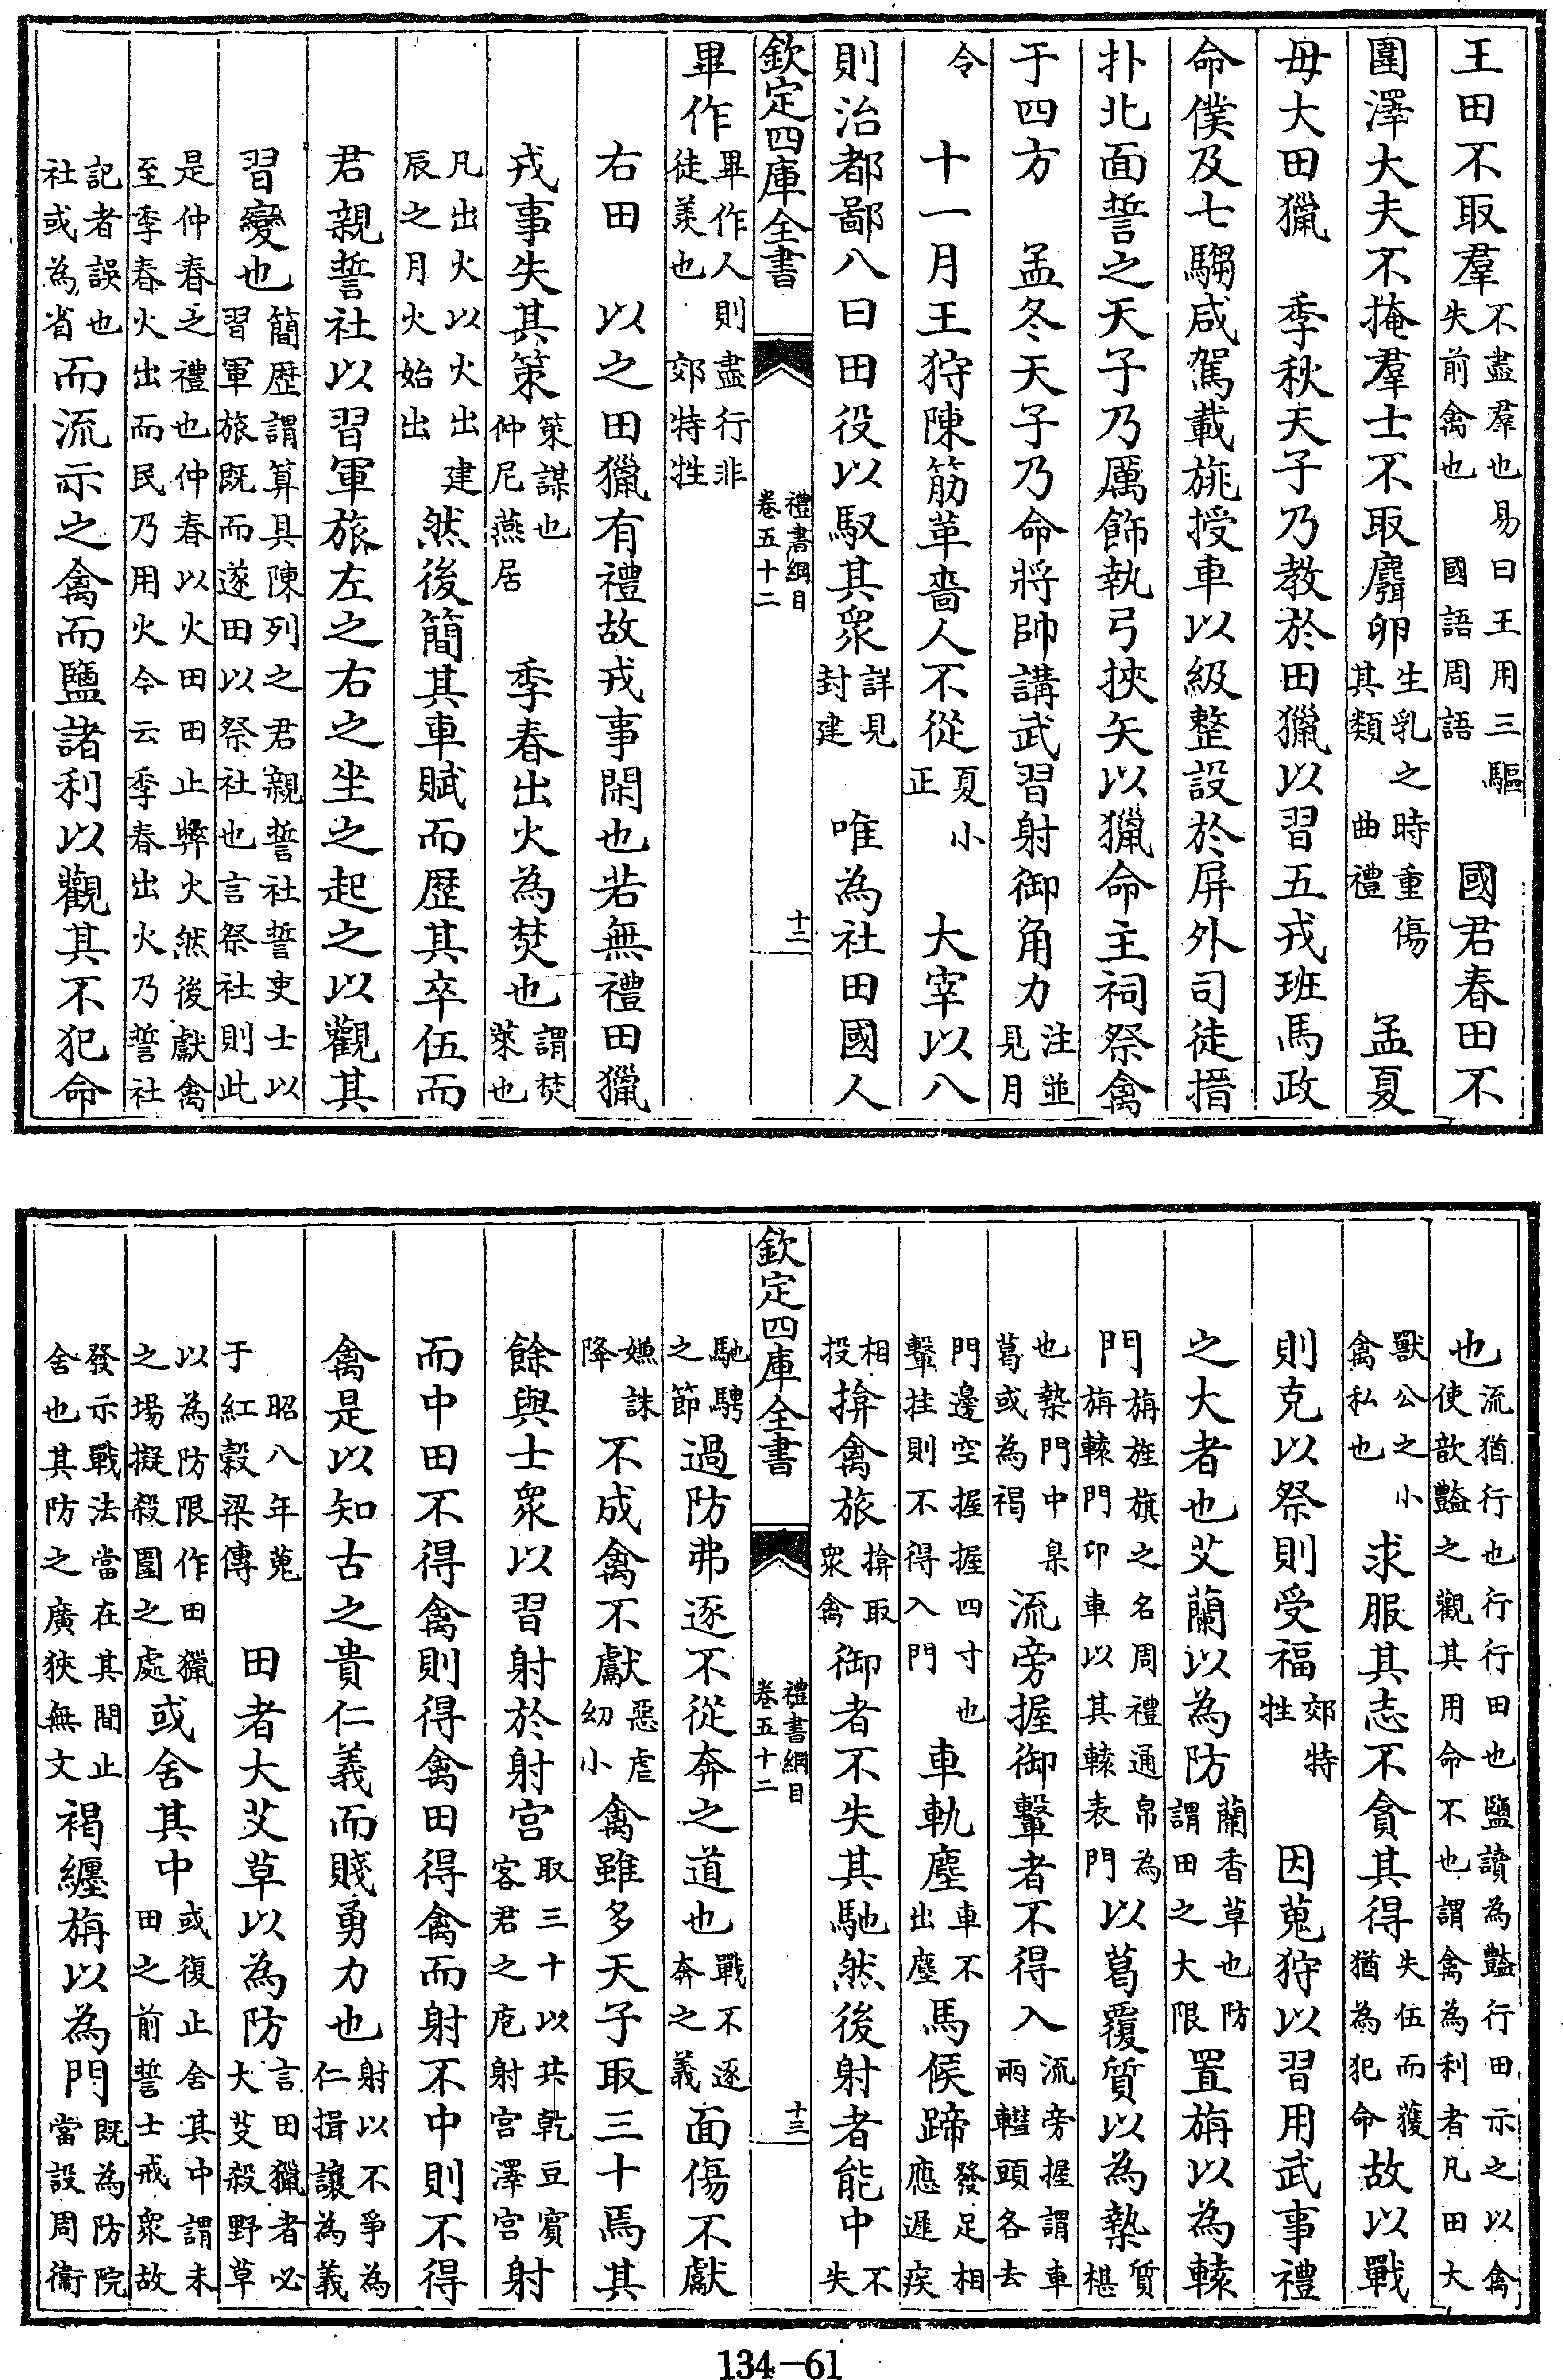 王田不取羣不盡羣也易曰王用三驅失前禽也 國語周語 國君春田不
圍澤大夫不掩羣士不取麛卵生乳之時重傷其類 曲禮 孟夏
毋大田獵 季秋天子乃教於田獵以習五戎班馬政
命僕及七騶咸駕載旐授車以級整設於屏外司徒搢
扑北面誓之天子乃厲飾執弓挾矢以獵命主祠祭禽
于四方 孟冬天子乃命將帥講武習射御角力注並見月
令 十一月王狩陳筋革嗇人不從夏小正 大宰以八
則治都鄙八曰田役以馭其衆詳見封建 唯為社田國人
欽定四庫全書 禮書綱目卷五十二 十二
畢作畢作人則盡行非徒羨也 郊特牲
右田 以之田獵有禮故戎事閑也若無禮田獵
戎事失其策策謀也 仲尼燕居 季春出火為焚也謂焚萊也
凡出火以火出建辰之月火始出 然後簡其車賦而歷其卒伍而
君親誓社以習軍旅左之右之坐之起之以觀其
習變也簡歴謂算具陳列之君親誓社誓吏士以習軍旅既而遂田以祭社也言祭社則此
是仲春之禮也仲春以火田田止弊火然後獻禽至季春火出而民乃用火今云季春出火乃誓社
記者誤也社或為省而流示之禽而鹽諸利以觀其不犯命
也流猶行也行行田也鹽讀為豔行田示之以禽使歆豔之觀其用命不也謂禽為利者凡田大
獸公之小禽私也 求服其志不貪其得失伍而獲猶為犯命故以戰
則克以祭則受福郊特牲 因蒐狩以習用武事禮
之大者也艾蘭以為防蘭香草也防謂田之大限置旃以為轅
門旃旌旗之名周禮通帛為旃轅門卬車以其轅表門以葛覆質以為槷質椹
也槷門中臬葛或為褐 流旁握御轚者不得入流旁握謂車兩轊頭各去
門邊空握握四寸也轚挂則不得入門 車軌塵車不出塵馬候蹄發足相應遲疾
相投揜禽旅揜取衆禽御者不失其馳然後射者能中不失
欽定四庫全書 禮書綱目卷五十二 十三
馳騁之節過防弗逐不從奔之道也戰不逐奔之義面傷不獻
嫌誅降 不成禽不獻惡虐幼小禽雖多天子取三十焉其
餘與士衆以習射於射宮取三十以共乾豆賓客君之庖射宮澤宮射
而中田不得禽則得禽田得禽而射不中則不得
禽是以知古之貴仁義而賤勇力也射以不爭為仁揖讓為義
昭八年蒐于紅穀梁傳 田者大艾草以為防言田獵者必大芟殺野草
以為防限作田獵之場擬殺圍之處或舍其中或復止舍其中謂未田之前誓士戒衆故
發示戰法當在其間止舍也其防之廣狹無文褐纏旃以為門既為防院當設周衞
134-61